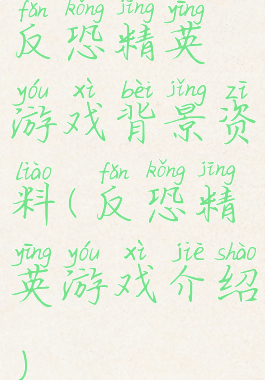 fǎn kǒng jīng yīng
反恐精英
yóu xì bèi jǐng zī
游戏背景资
liào fǎn kǒng jīng
料(反恐精
yīng yóu xì jiè shào
英游戏介绍
)